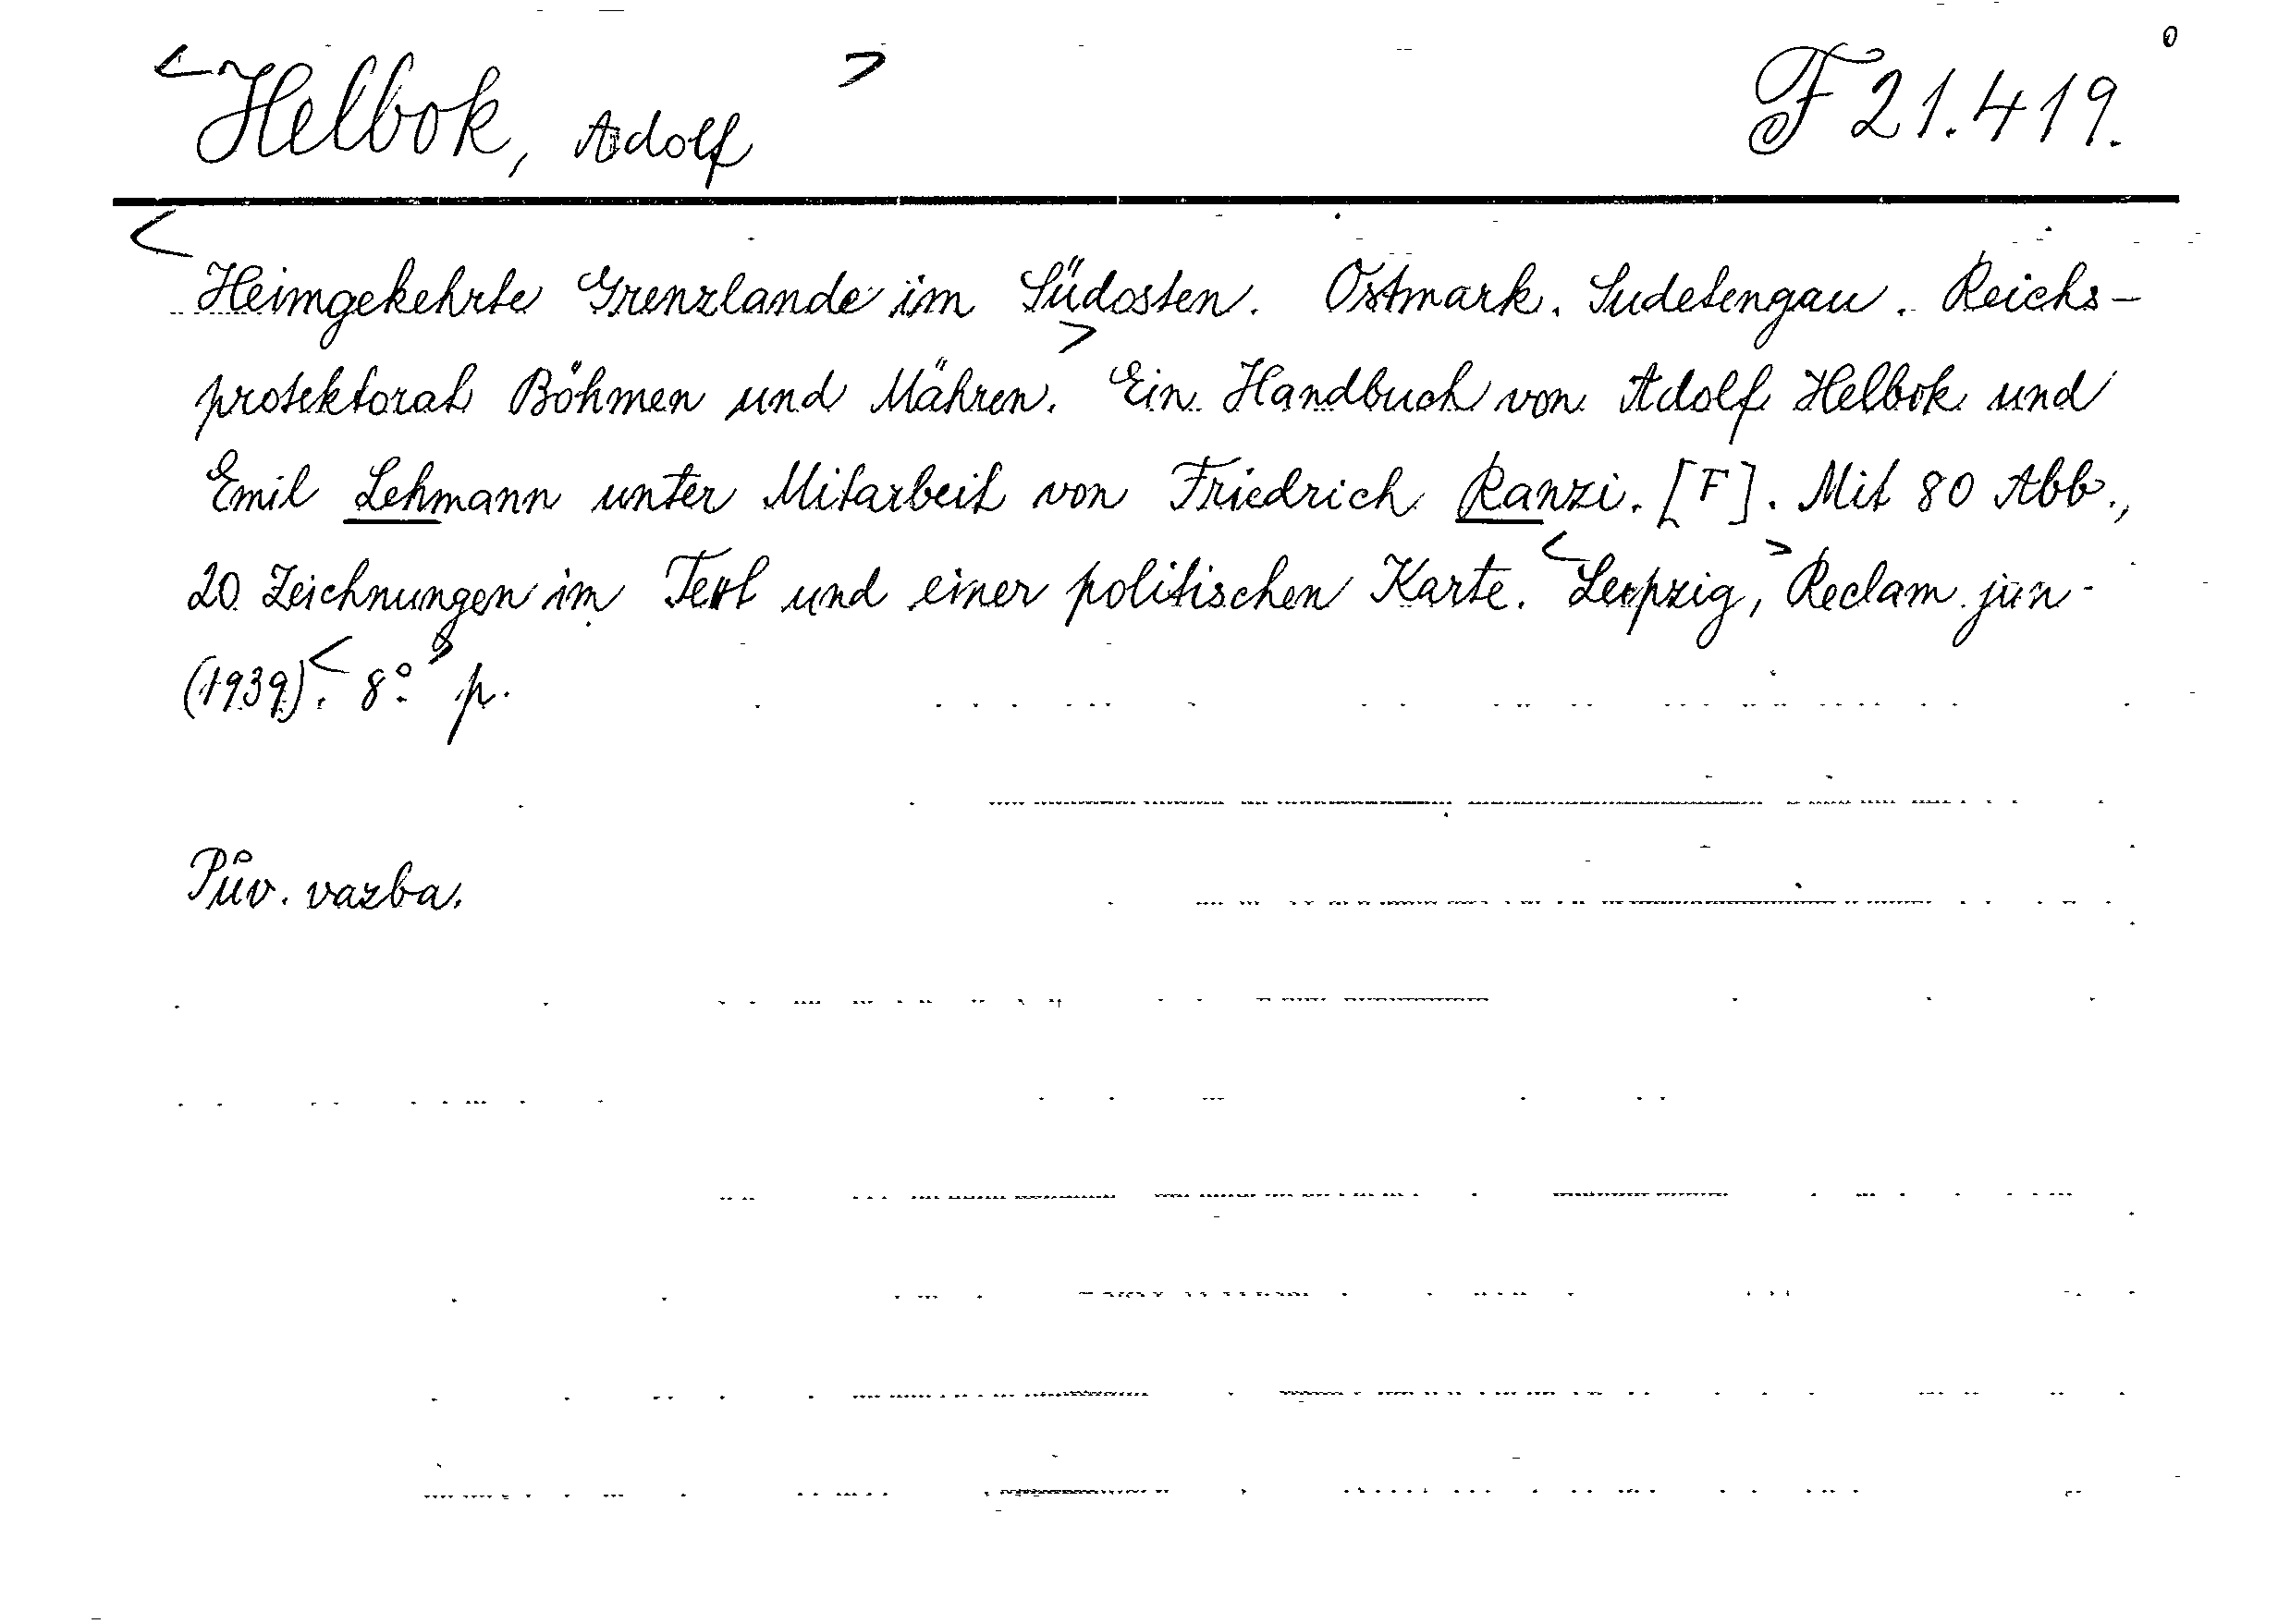 <Helbok, Adolf> F 21.419.
<Heimgekehrte Grenzlande im Südosten. Ostmark. Sudetengau. Reichs-
protektorat Böhmen und Mähren.> Ein Handbuch von Adolf Helbok und
Emil Lehmann unter Mitarbeit von Friedrich Ranzi. [F]. Mit 80 Abb.,
20 Zeichnungen im Text und einer politischen Karte. <Leipzig,> Reclam jun.
(1939).< 8°.> p.
Pův. vazba.